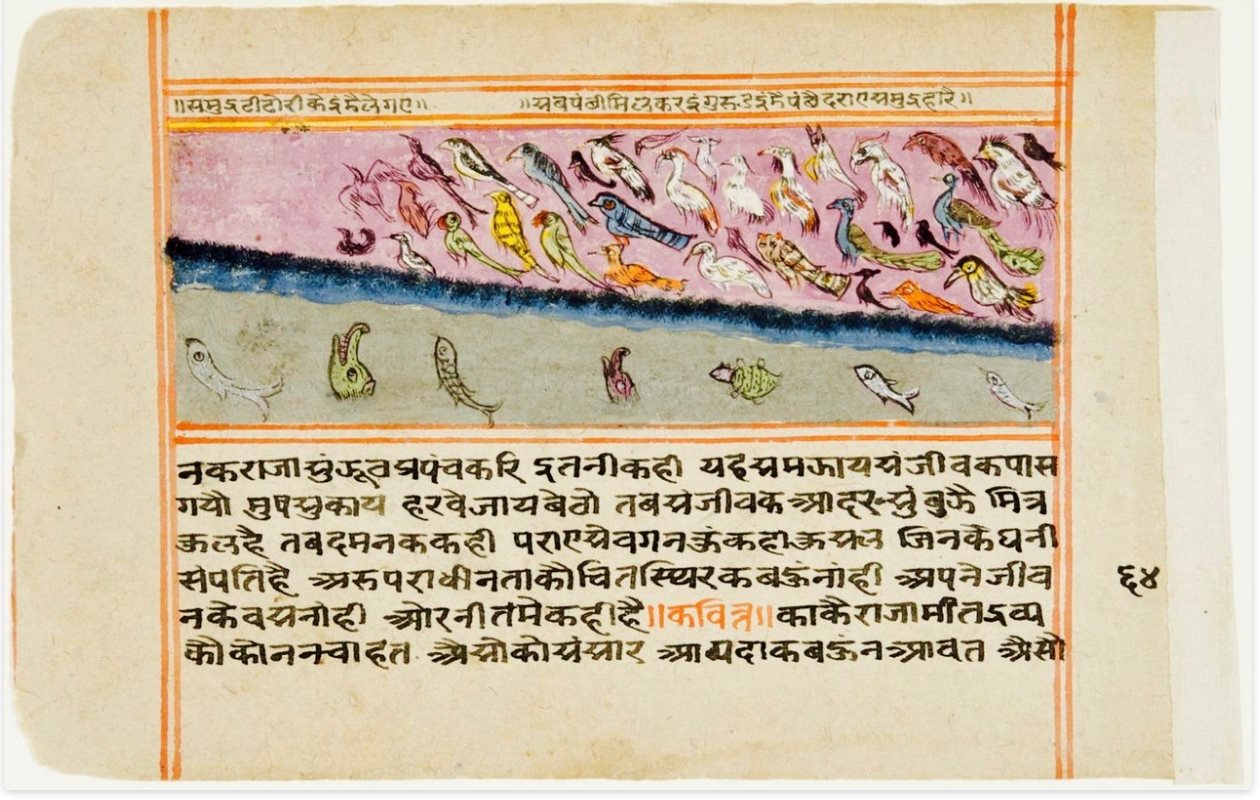 ॥समुद्रटीटोरीकेइंडैलेगए॥ ॥सबपंछीमिलकरइंगुरुडइंडैपंछैदराएसमुद्रहारै॥
नकराजासुंऊवप्रपंचकरि इतनीकही यहैसमझायसंजीवकपास
गयौ मुषसुकाय हरवेजायबेठो तबसंजीवकआदरसुंबुझै मित्र
कुसलहै तबदमनककही पराएसेवगनकुंकहाकुसल जिनकेधनी
संपतिहै अरुपराधीनताकौचितस्थिरकबहुंनांही अपनेजीव
नकेवसनांही ओरनीतमेकहीहै॥कवित्त॥काकैराजामींतद्रव्य
कौकोननचाहत ऐसोकोसंसार आपदाकबहुंनआवत ऐसौ
६४